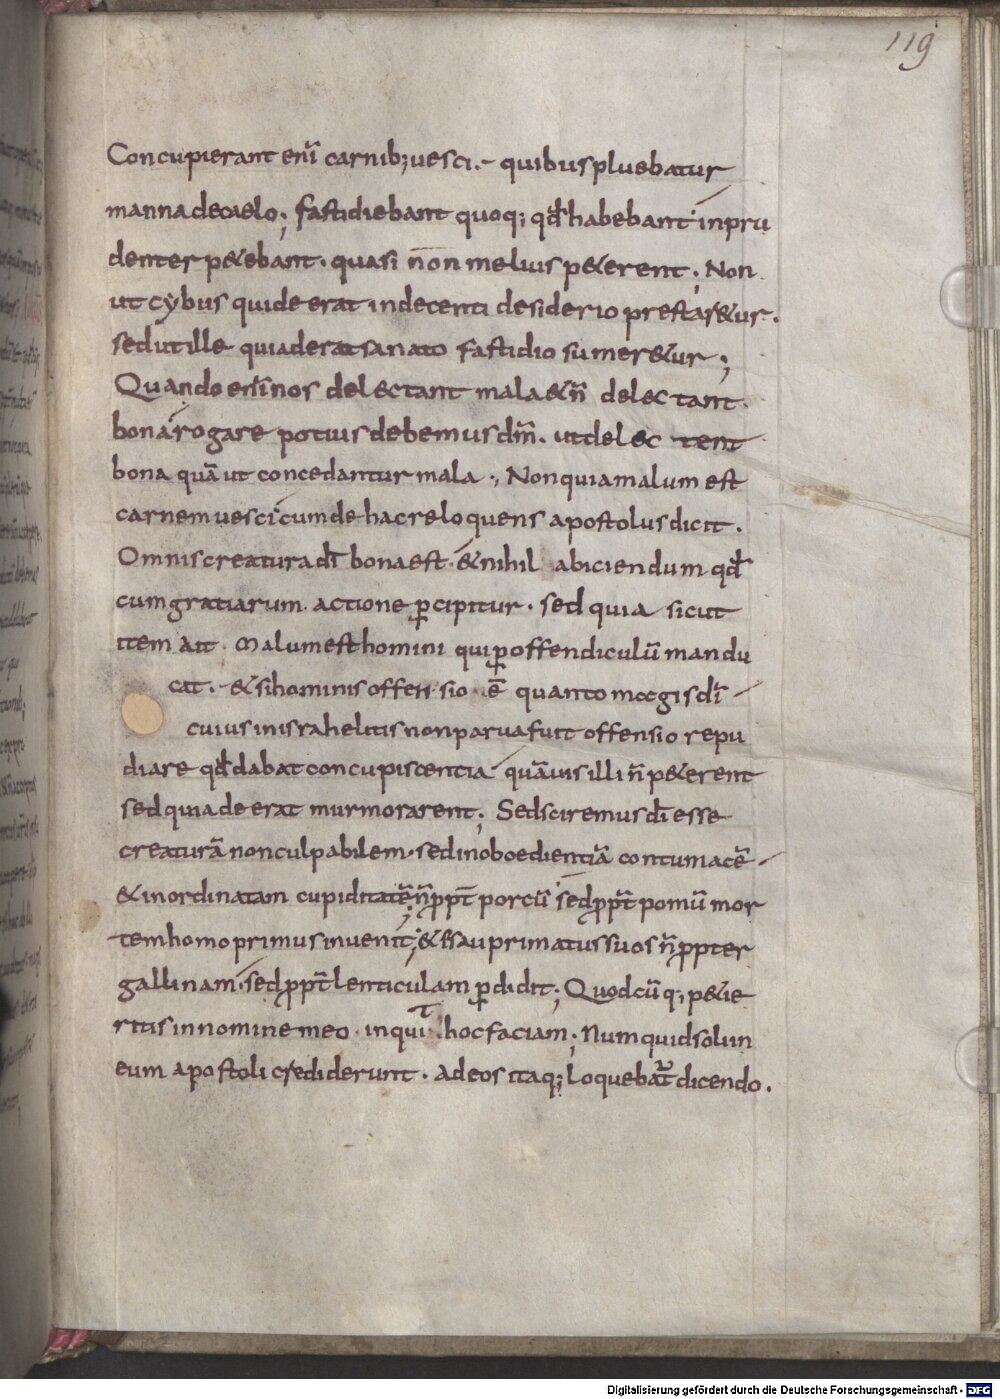 119
Concupierant eni̅ carnib; uesci. quibus pluebatur
manna de caelo; fastidiebant quoq; qd̅ habebant inpru
denter p&ebant. quasi non melius p&erent; Non
ut cybus qui deerat indecenti desiderio prestar&ur.
sed ut ille qui aderat sanato fastidio sumer&ur;
Quando eni̅ nos delectant mala & n̅ delectant
bona rogare potius debemus dm̅. ut delectent
bona qua̅ ut concedantur mala; Non quia malum est
carnem uesci cum de hac re loquens apostolus dicit.
Omnis creatura di̅ bona est. & nihil abiciendum qd̅
cum gratiarum actione p̱cipitur. sed quia sicut
item ait. Malum est homini qui p̱ offendiculu̅ mandu
cat. & si hominis offensio e̅ quanto magis di̅
cuius in israhelitis non parua fuit offensio repu
diare qd̅ dabat concupiscentia qua̅uis illi n̅ p&erent
sed quia deerat murmorarent; Sed sciremus di̅ esse
creatura̅ non culpabilem. sed inoboedientia̅ contumace̅
& inordinatam cupiditate̅ n̅ ppt̅ porcu̅ sed ppt̅ pomu̅ mor
tem homo primus inuenit; & esau primatus suos n̅ ppter
gallinam. sed ppt̅ lenticulam p̱didit; Quodcu̅q; p&ie
ritis in nomine meo inquit hoc faciam; Numquid solum
eum apostoli crediderunt. Ad eos itaq; loquebat̅ dicendo.
Digitalisierung gefördert durch die Deutsche Forschungsgemeinschaft - DFG